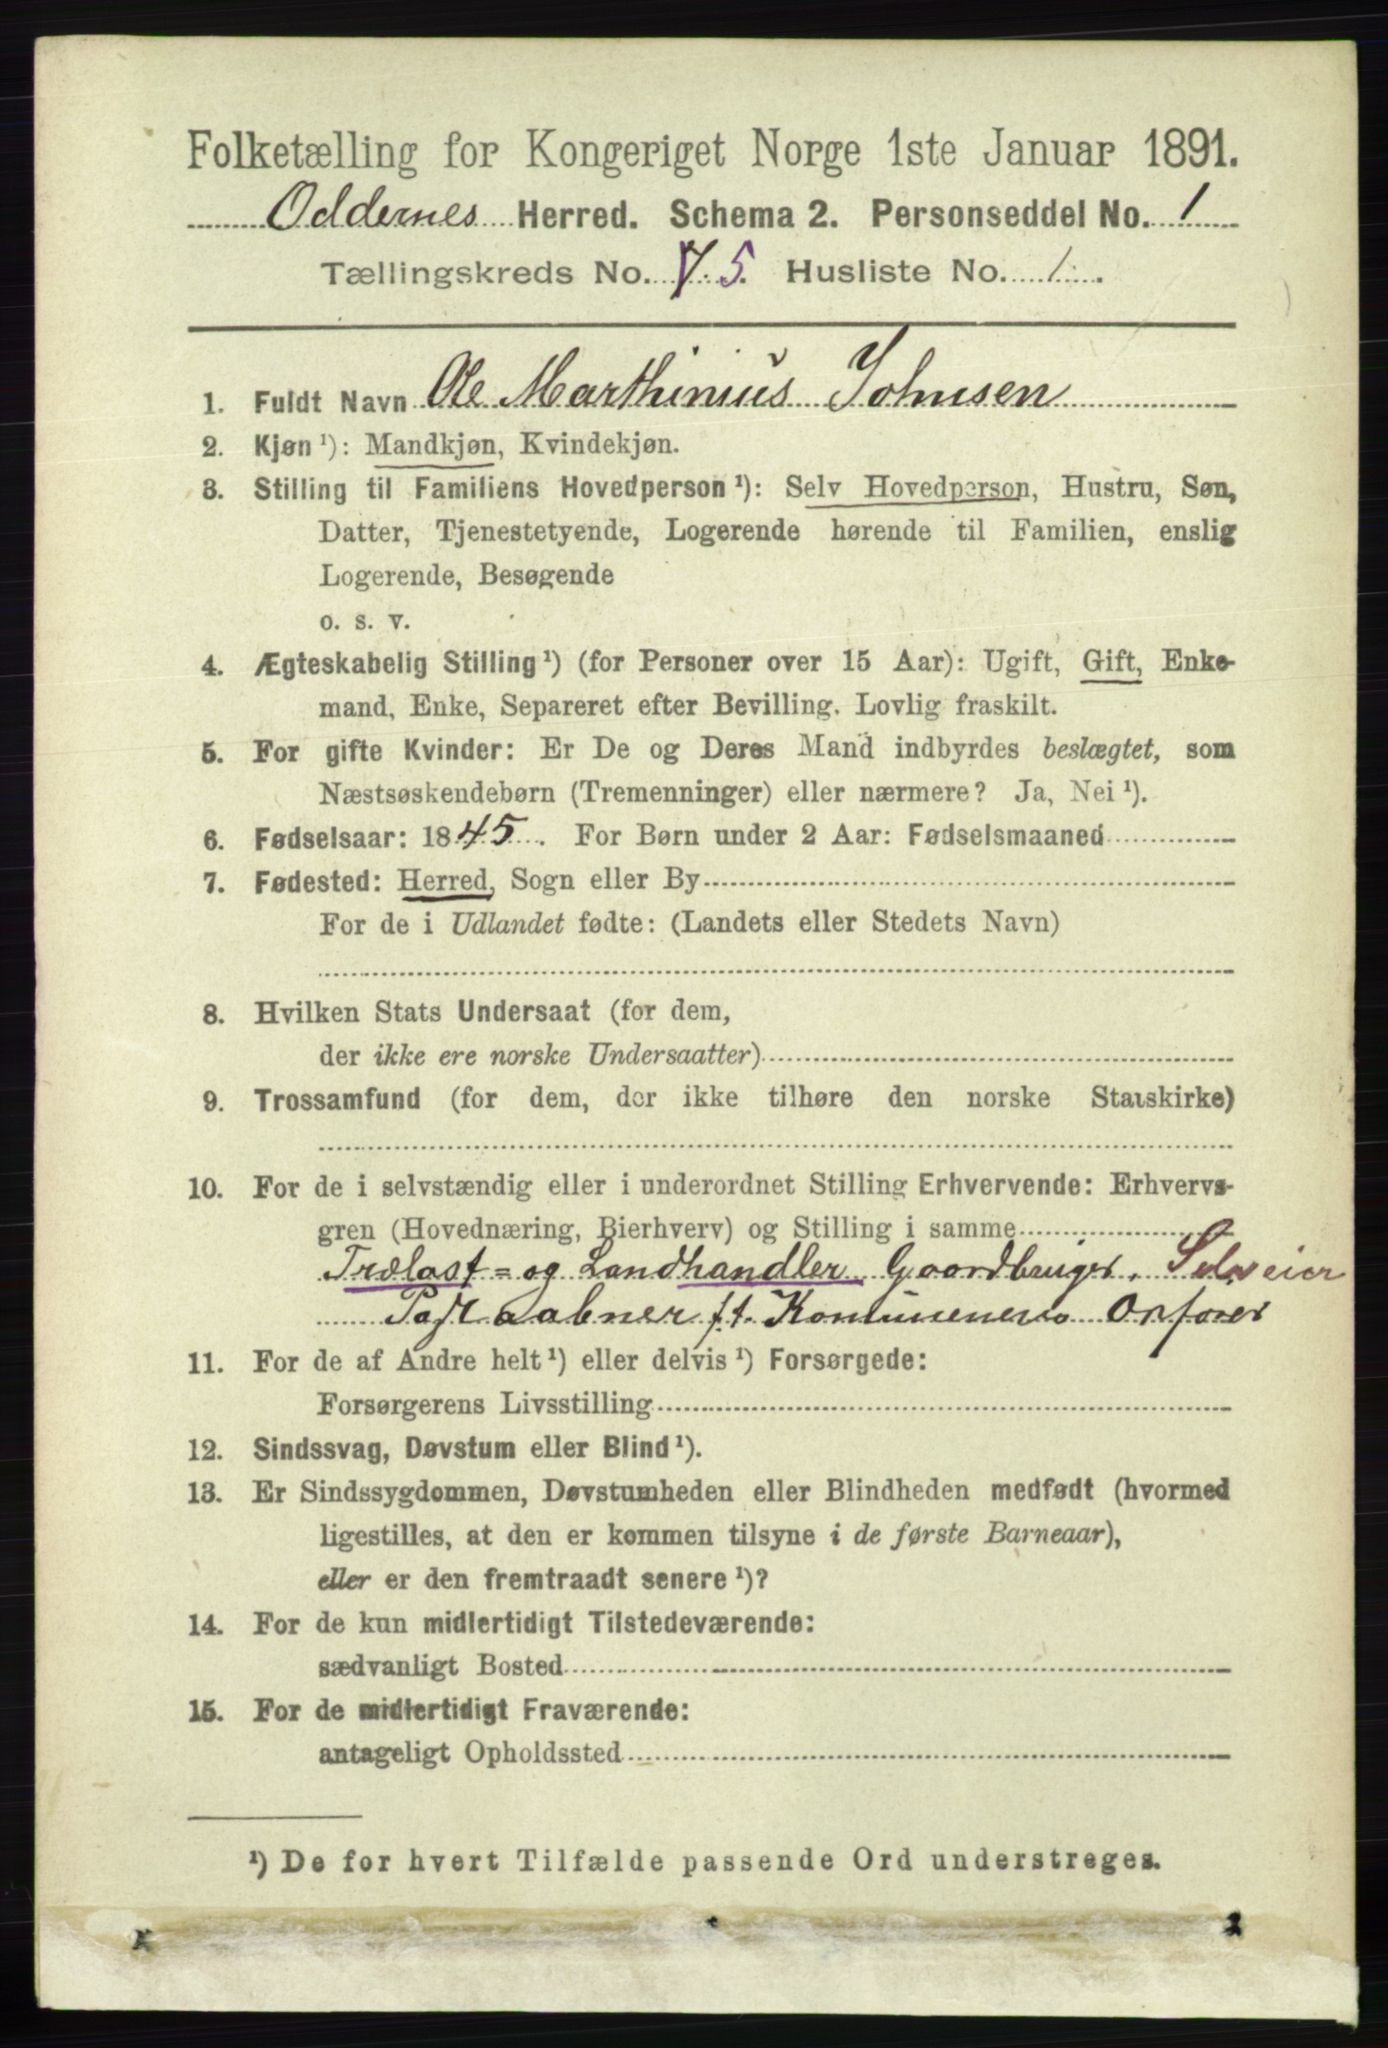 Folketælling for Kongeriget Norge 1ste Januar 1891.
Oddernes Herred. Schema 2. Personseddel No. 1
Tællingskreds No. 5. Husliste No. 1.
1. Fuldt Navn Ole Marthinius Johnsen
2. Kjøn¹): Mandkjøn, Kvindekjøn.
3. Stilling til Familiens Hovedperson¹): Selv Hovedperson, Hustru, Søn,
Datter, Tjenestetyende, Logerende hørende til Familien, enslig
Logerende, Besøgende
o. s. v.
4. Ægteskabelig Stilling¹) (for Personer over 15 Aar): Ugift, Gift, Enke-
mand, Enke, Separeret efter Bevilling. Lovlig fraskilt.
5. For gifte Kvinder: Er De og Deres Mand indbyrdes beslægtet, som
Næstsøskendebørn (Tremenninger) eller nærmere? Ja, Nei¹).
6. Fødselsaar: 1845. For Børn under 2 Aar: Fødselsmaaned
7. Fødested: Herred, Sogn eller By
For de i Udlandet fødte: (Landets eller Stedets Navn)
8. Hvilken Stats Undersaat (for dem,
der ikke ere norske Undersaatter)
9. Trossamfund (for dem, der ikke tilhøre den norske Statskirke)
10. For de i selvstændig eller i underordnet Stilling Erhvervende: Erhvervs-
gren (Hovednæring, Bierhverv) og Stilling i samme
Trælast= og Landhandler Gaardbruger, Selveier
Postaabner f.t. Ordfører
11. For de af Andre helt¹) eller delvis¹) Forsørgede:
Forsørgerens Livsstilling
12. Sindssvag, Døvstum eller Blind¹).
13. Er Sindssygdommen, Døvstumheden eller Blindheden medfødt (hvormed
ligestilles, at den er kommen tilsyne i de første Barneaar),
eller er den fremtraadt senere¹)?
14. For de kun midlertidigt Tilstedeværende:
sædvanligt Bosted
15. For de midlertidigt Fraværende:
antageligt Opholdssted
¹) De for hvert Tilfælde passende Ord understreges.